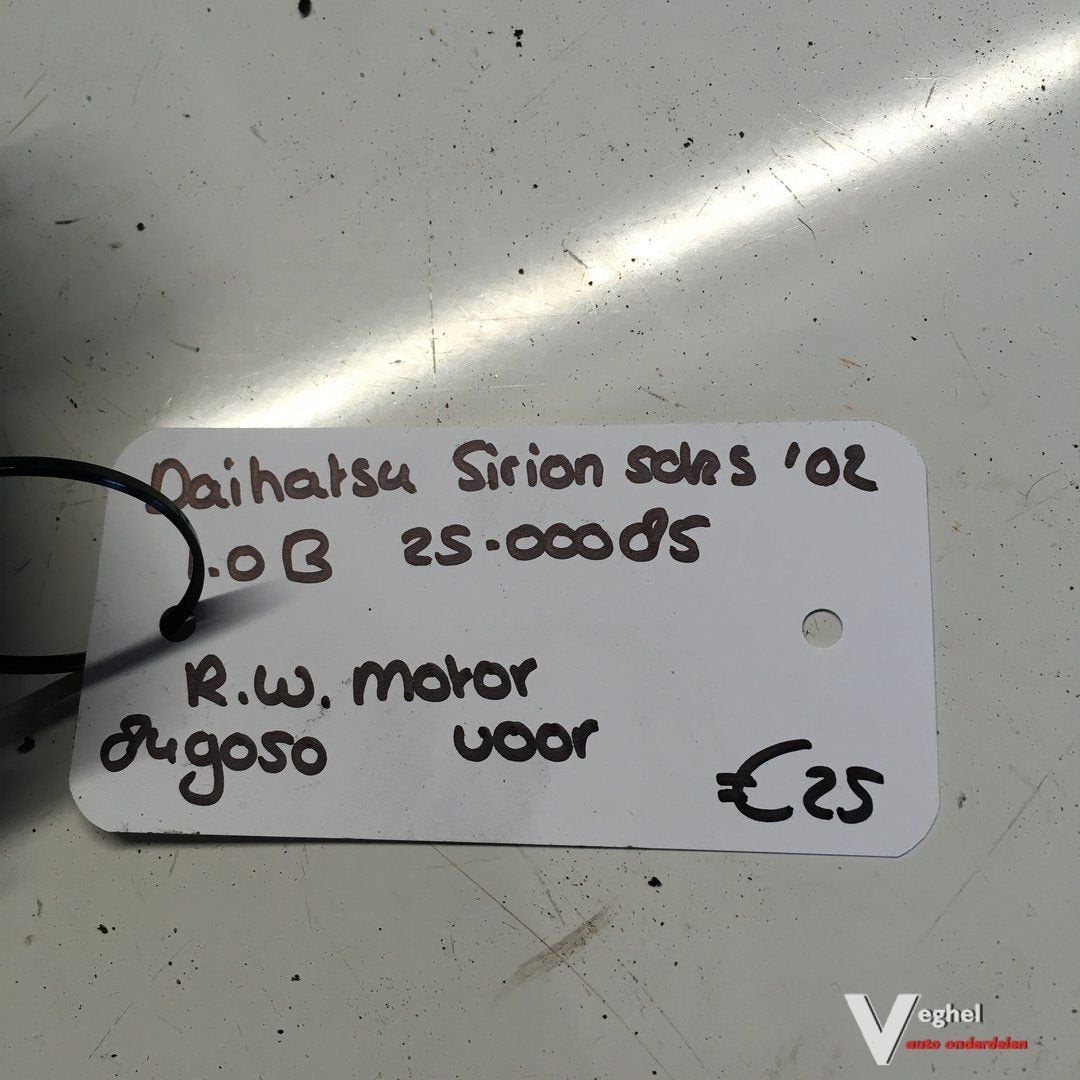 Daihatsu Sirion sdrs '02
1.0 B 25.00085
R.W. motor
849050 voor
€25
Veghel
auto onderdelen